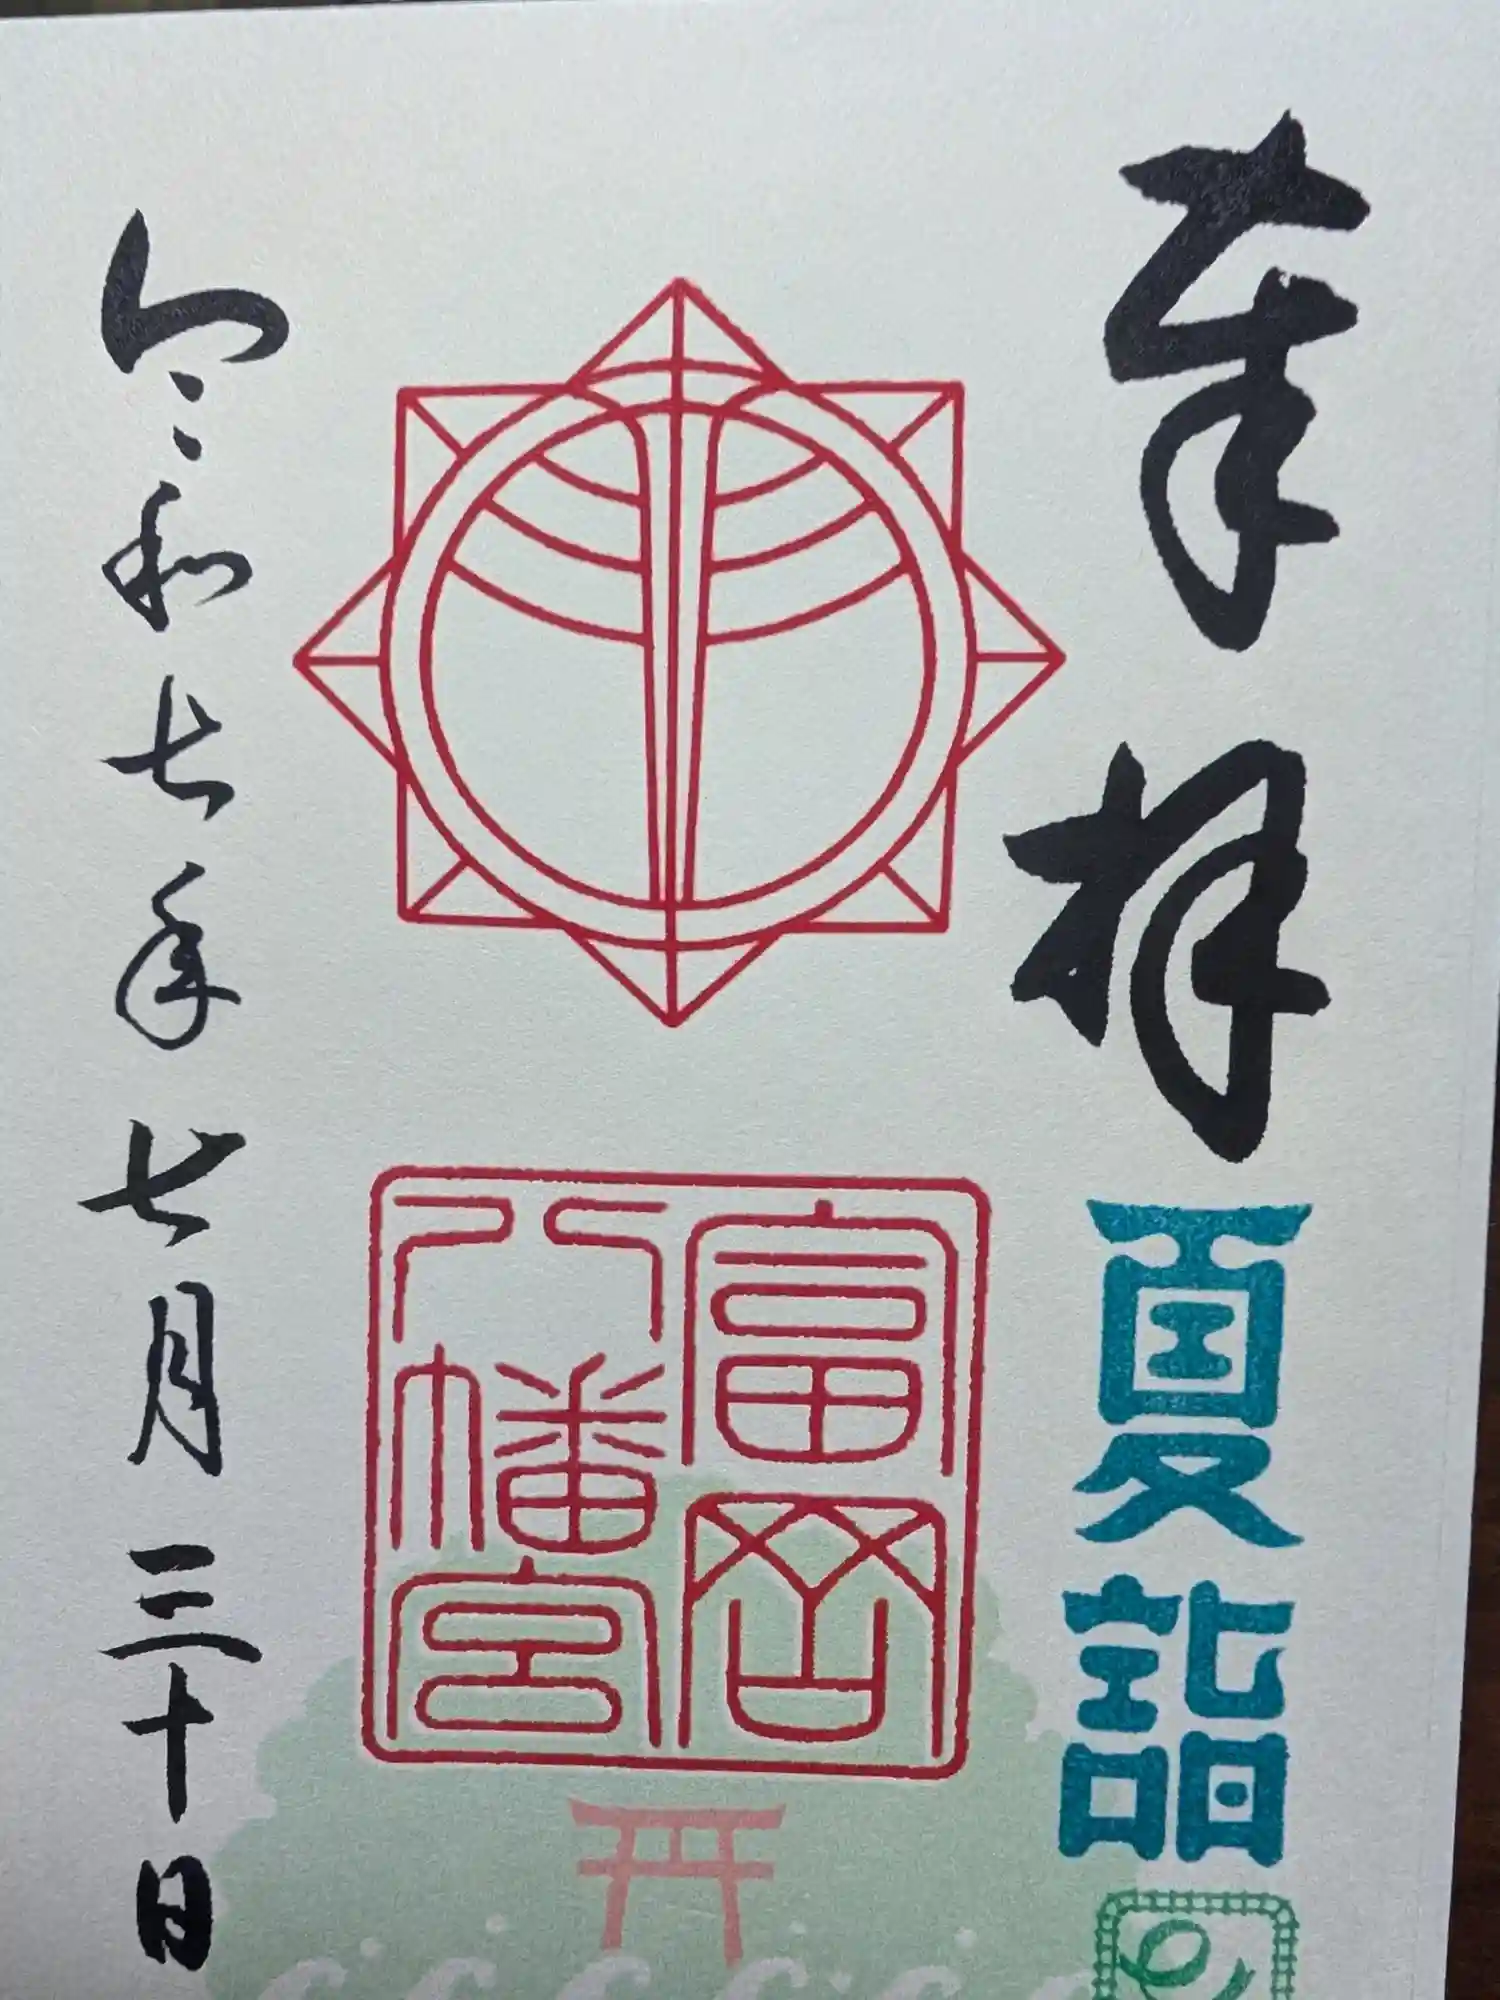 奉拝
夏詣
富岡
八幡宮
令和七年七月三十日